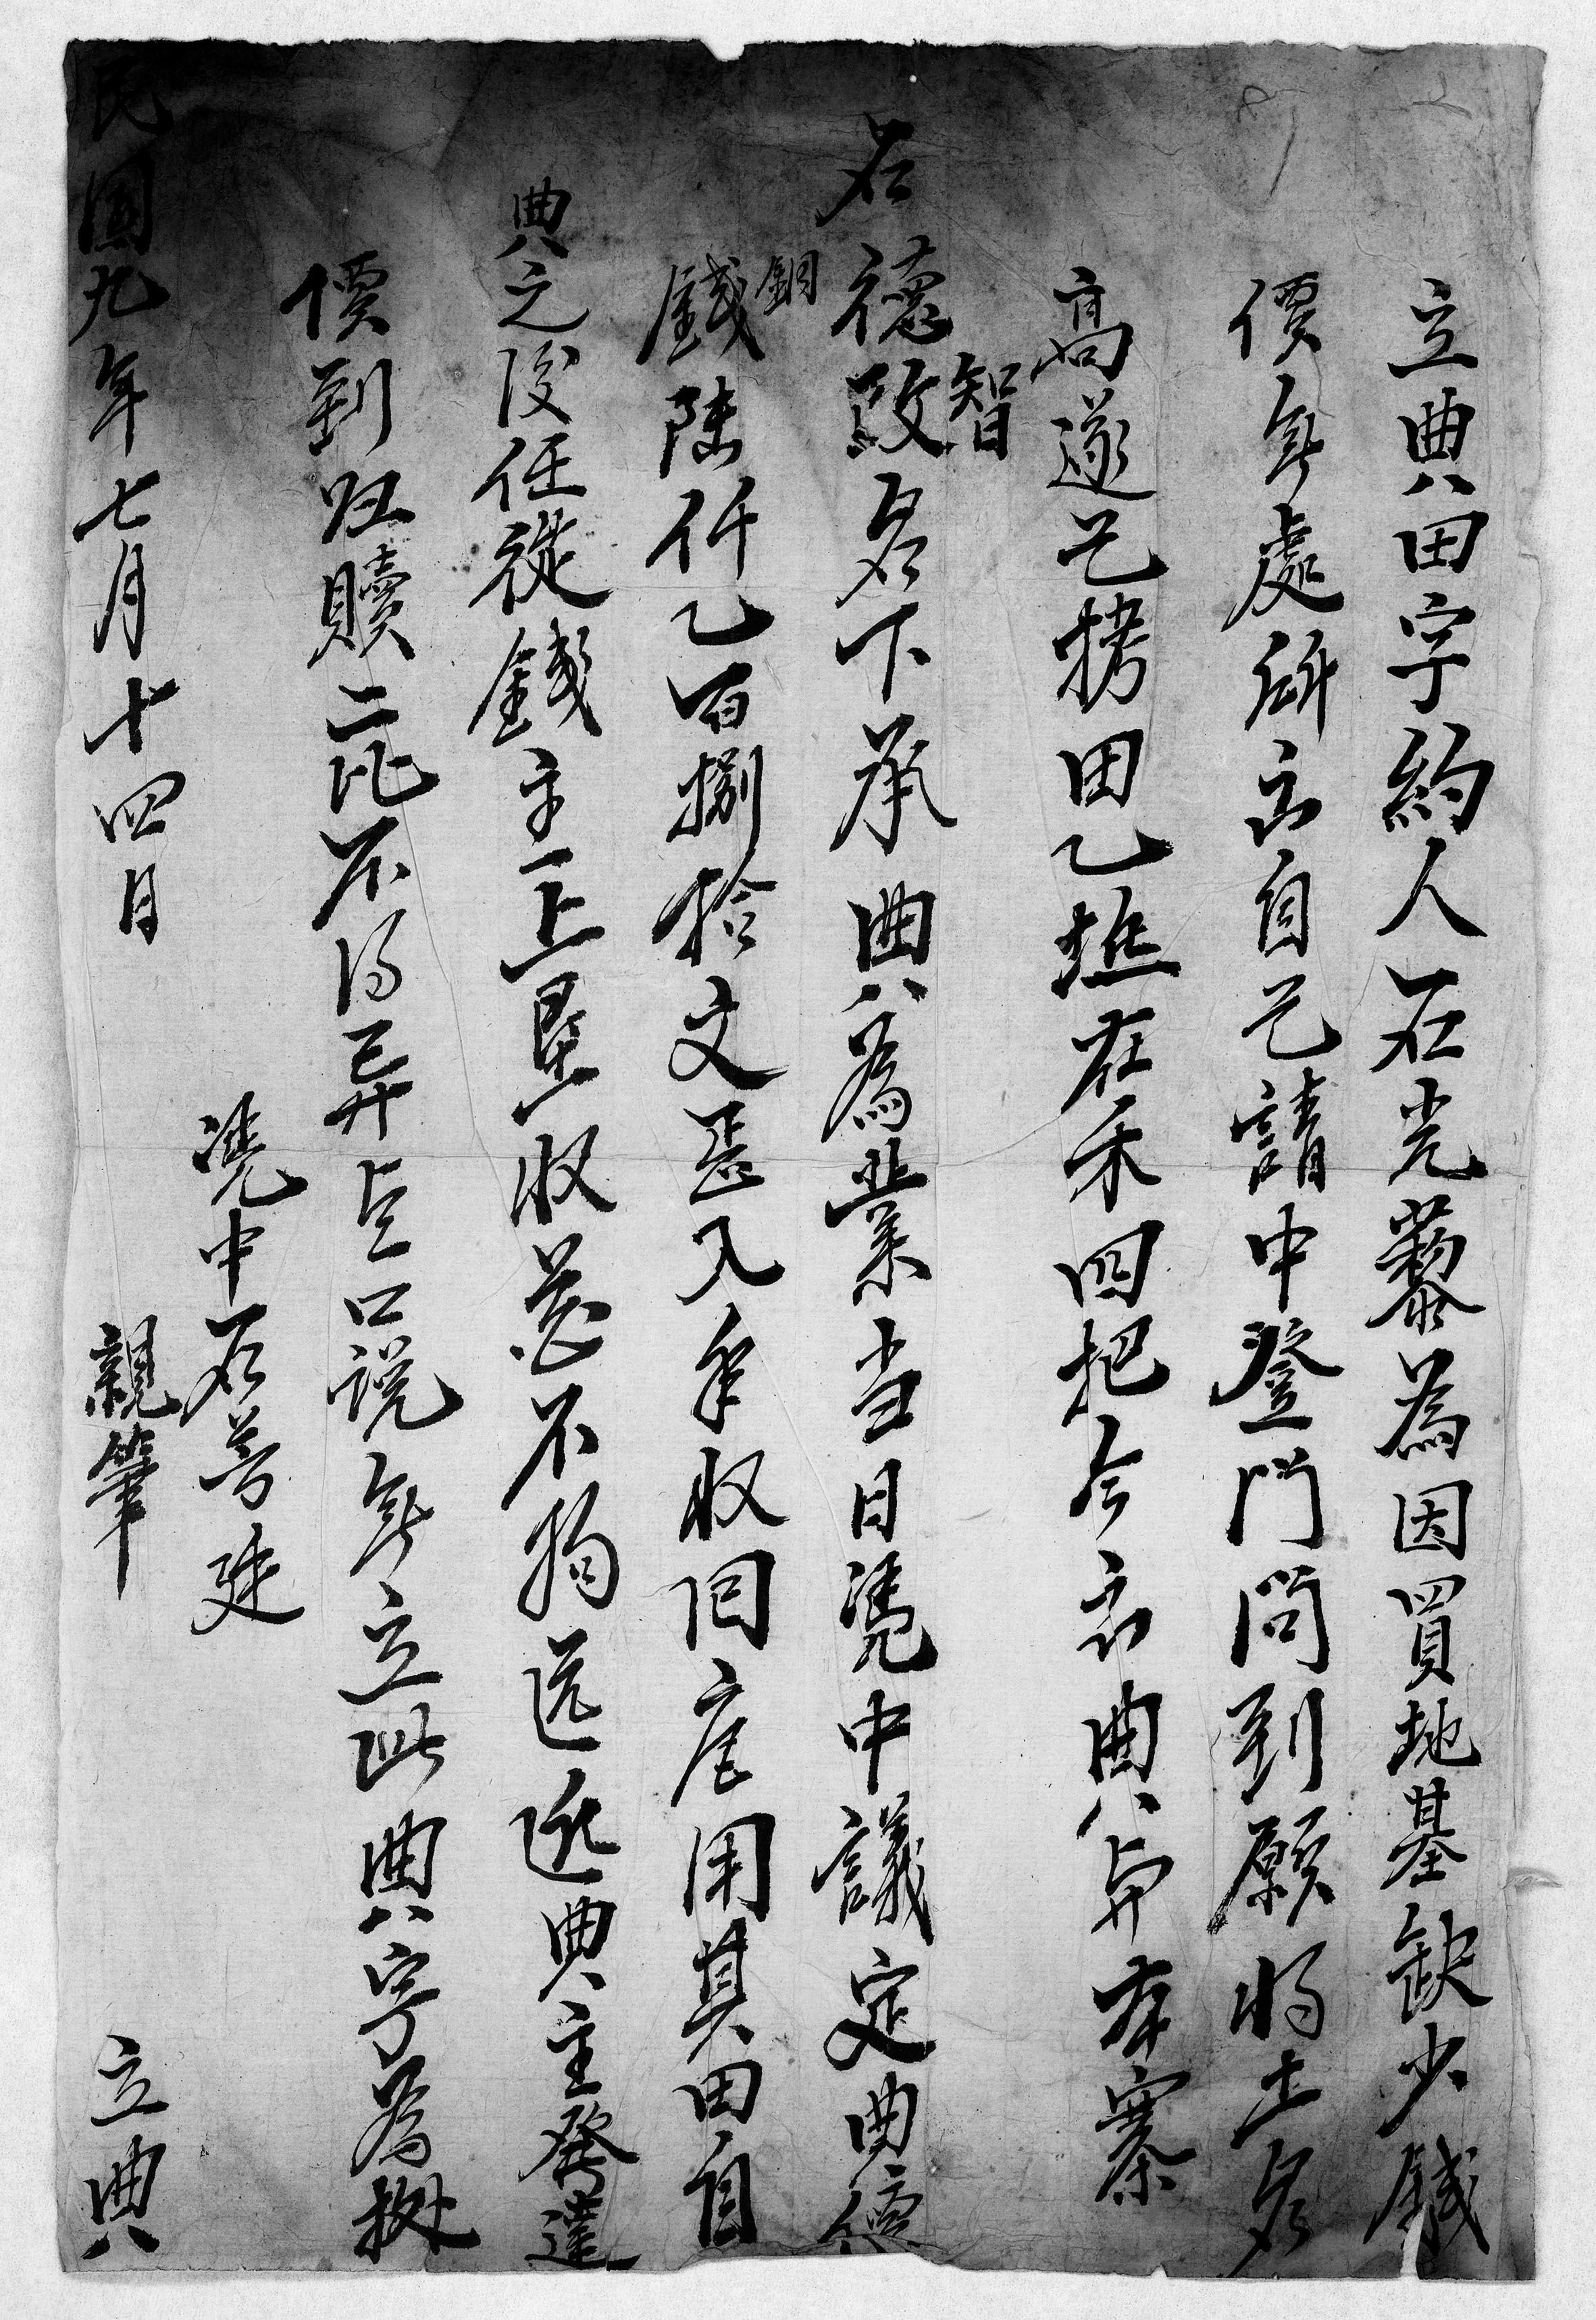 立典田字約人石光藜為因買地基缺少錢
價無處所出自己請中登門問到願将土名
高遂己拷田乙坵在禾四把今出典与本寨
石德政智名下承典為業当日凭中議定典價
銅錢陆仟乙百捌拾文悉入手收回应用其田自
典之後任從錢主上垦收花不拘远近典主發達
價到归贖二比不得异言口説無立此典字為據
凭中石善廷
民國九年七月十四日 親筆 立典